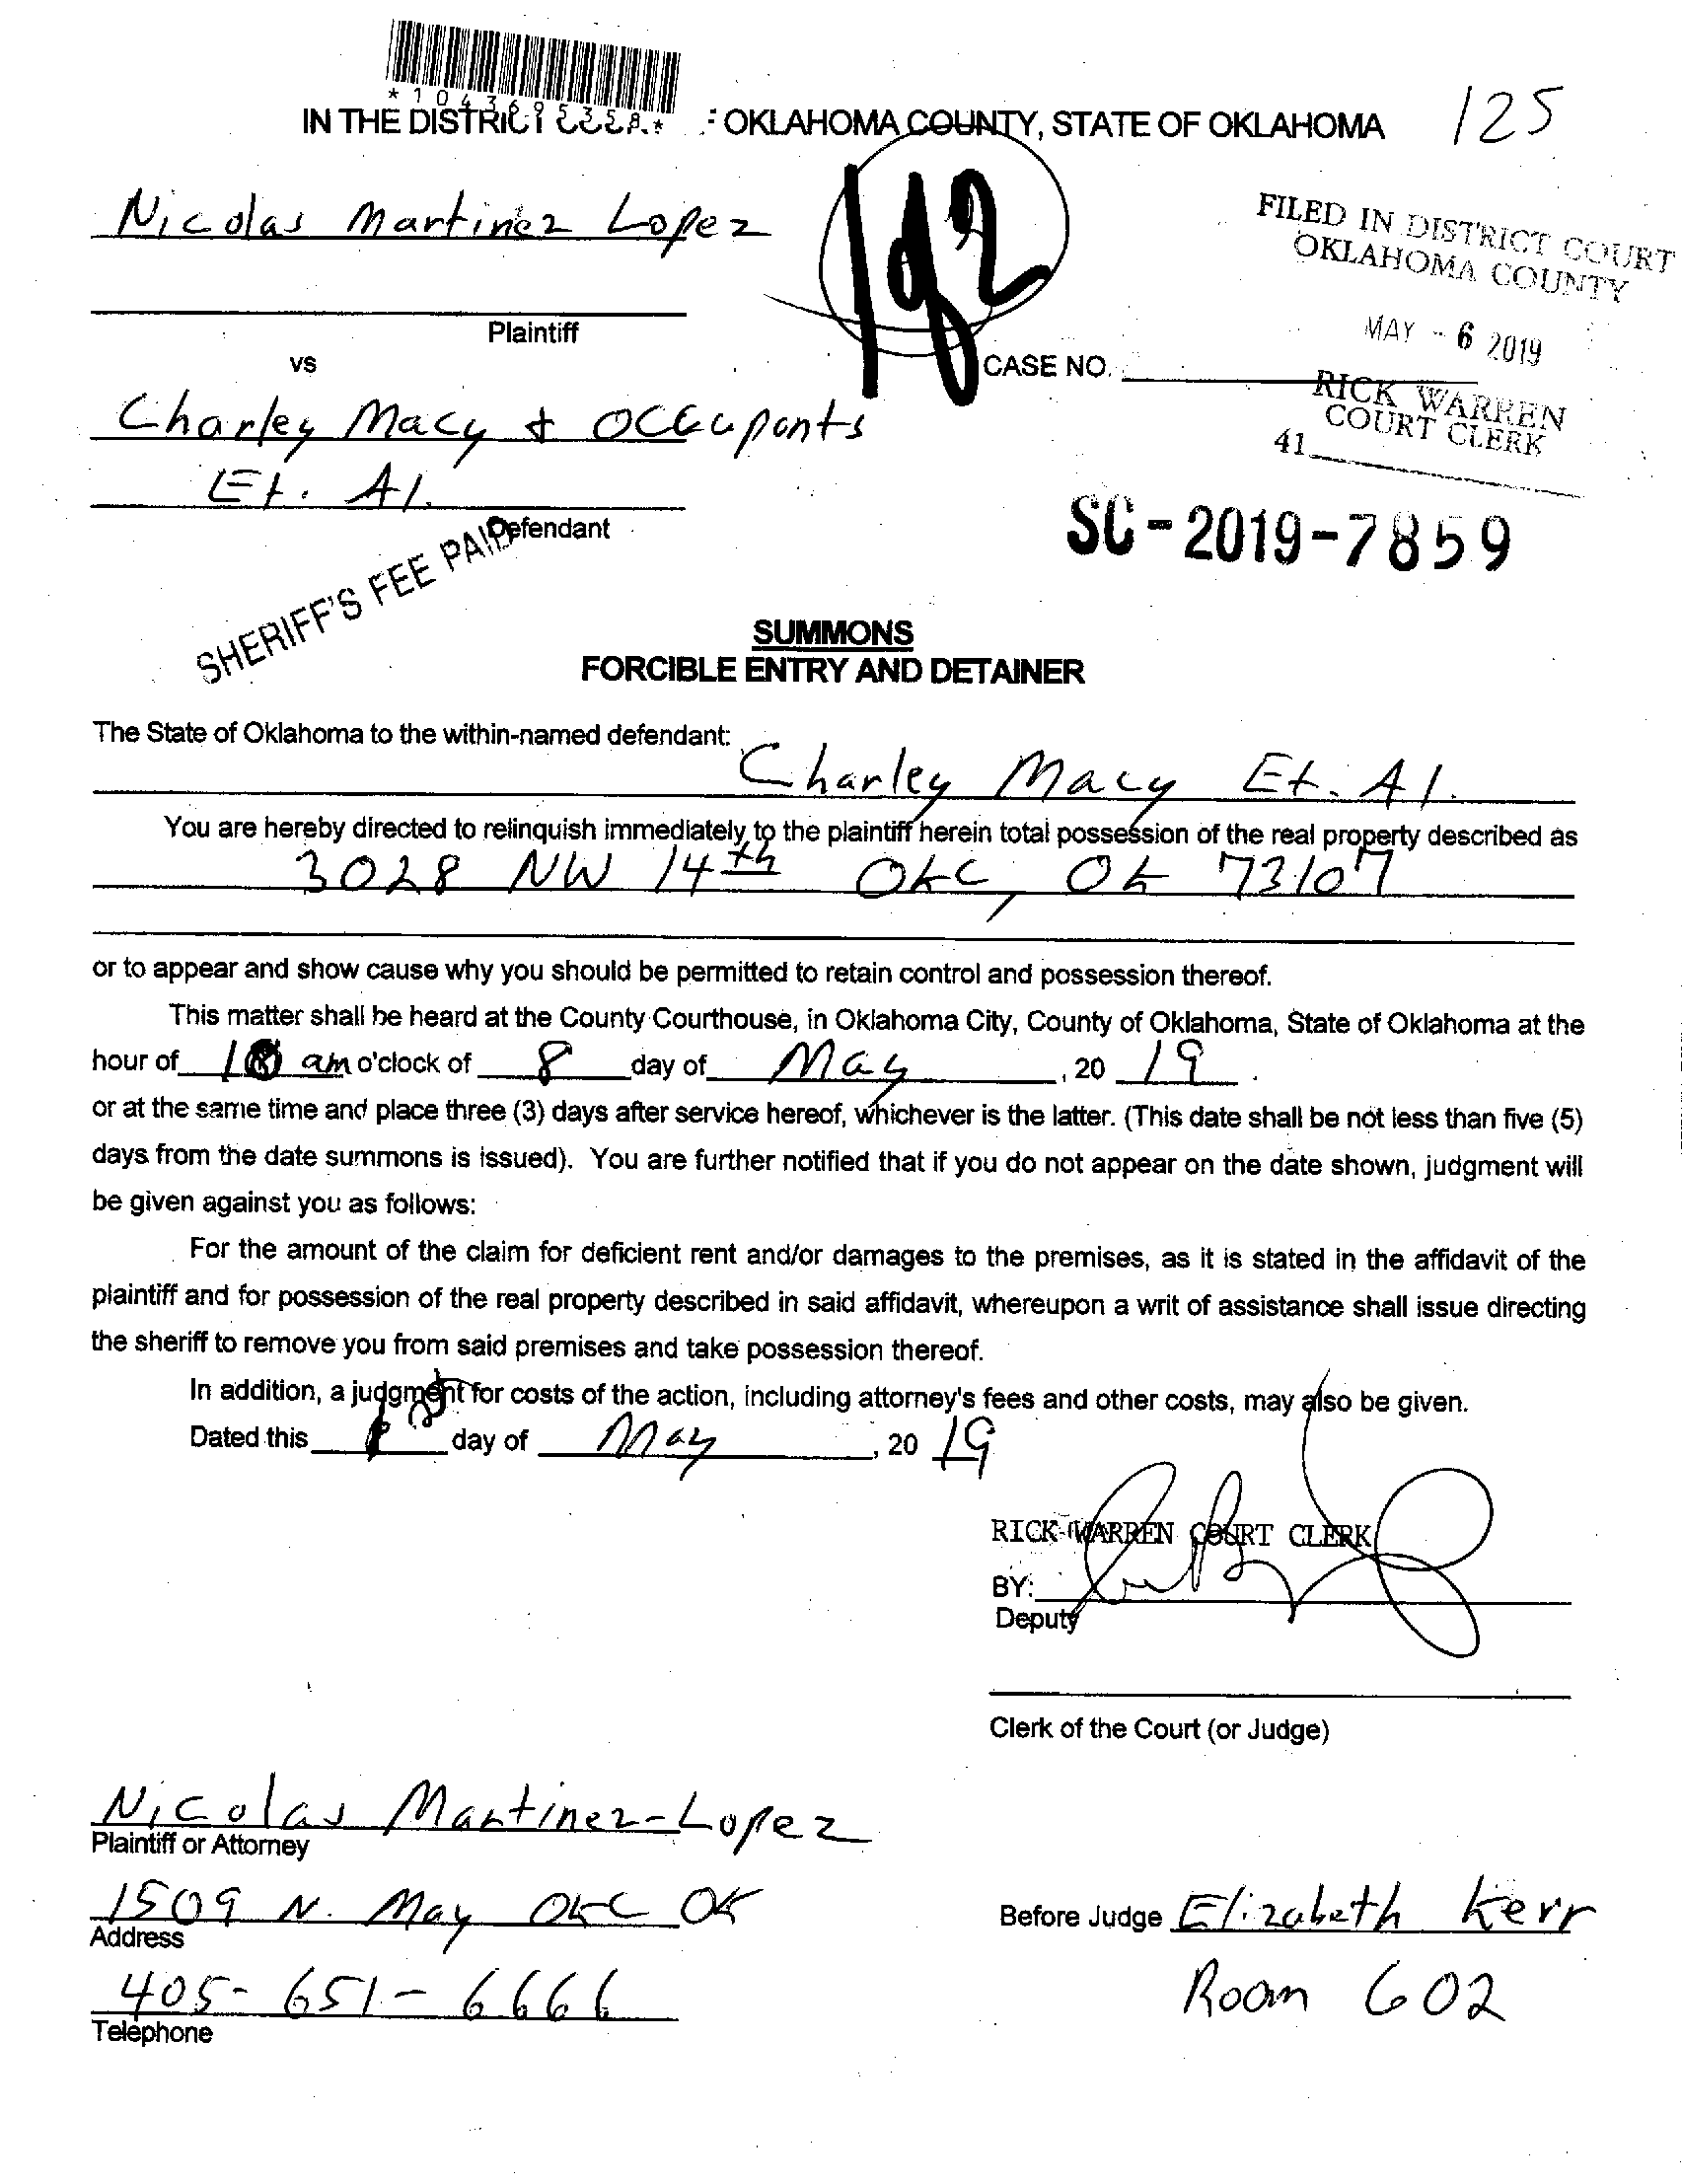 IN THE DISTRICT OKLAHOMA COUNTY, STATE OF OKLAHOMA
125
Nicolas Martinez Lopez
1 g 2
FILED IN DISTRICT COURT
OKLAHOMA COUNTY
MAY - 6 2019
Plaintiff
vs
CASE NO.
RICK WARREN
COURT CLERK
41
Charley Macy + Occupants
Et. Al.
Defendant
SHERIFF'S FEE PAID
SC-2019-7859
SUMMONS
FORCIBLE ENTRY AND DETAINER
The State of Oklahoma to the within-named defendant:
Charley Macy Et. Al.
You are hereby directed to relinquish immediately to the plaintiff herein total possession of the real property described as
3028 NW 14th OKC, OK 73107
or to appear and show cause why you should be permitted to retain control and possession thereof.
This matter shall be heard at the County Courthouse, in Oklahoma City, County of Oklahoma, State of Oklahoma at the
hour of am o'clock of 8 day of May, 20 19.
or at the same time and place three (3) days after service hereof, whichever is the latter. (This date shall be not less than five (5)
days from the date summons is issued). You are further notified that if you do not appear on the date shown, judgment will
be given against you as follows:
For the amount of the claim for deficient rent and/or damages to the premises, as it is stated in the affidavit of the
plaintiff and for possession of the real property described in said affidavit, whereupon a writ of assistance shall issue directing
the sheriff to remove you from said premises and take possession thereof.
In addition, a judgment for costs of the action, including attorney's fees and other costs, may also be given.
Dated this day of May, 20 19
RICK WARREN COURT CLERK
BY:
Deputy
Clerk of the Court (or Judge)
Nicolas Martinez-Lopez
Plaintiff or Attorney
1509 N. May OKC OK
Address
Before Judge Elizabeth Kerr
405-651-6666
Room 602
Telephone